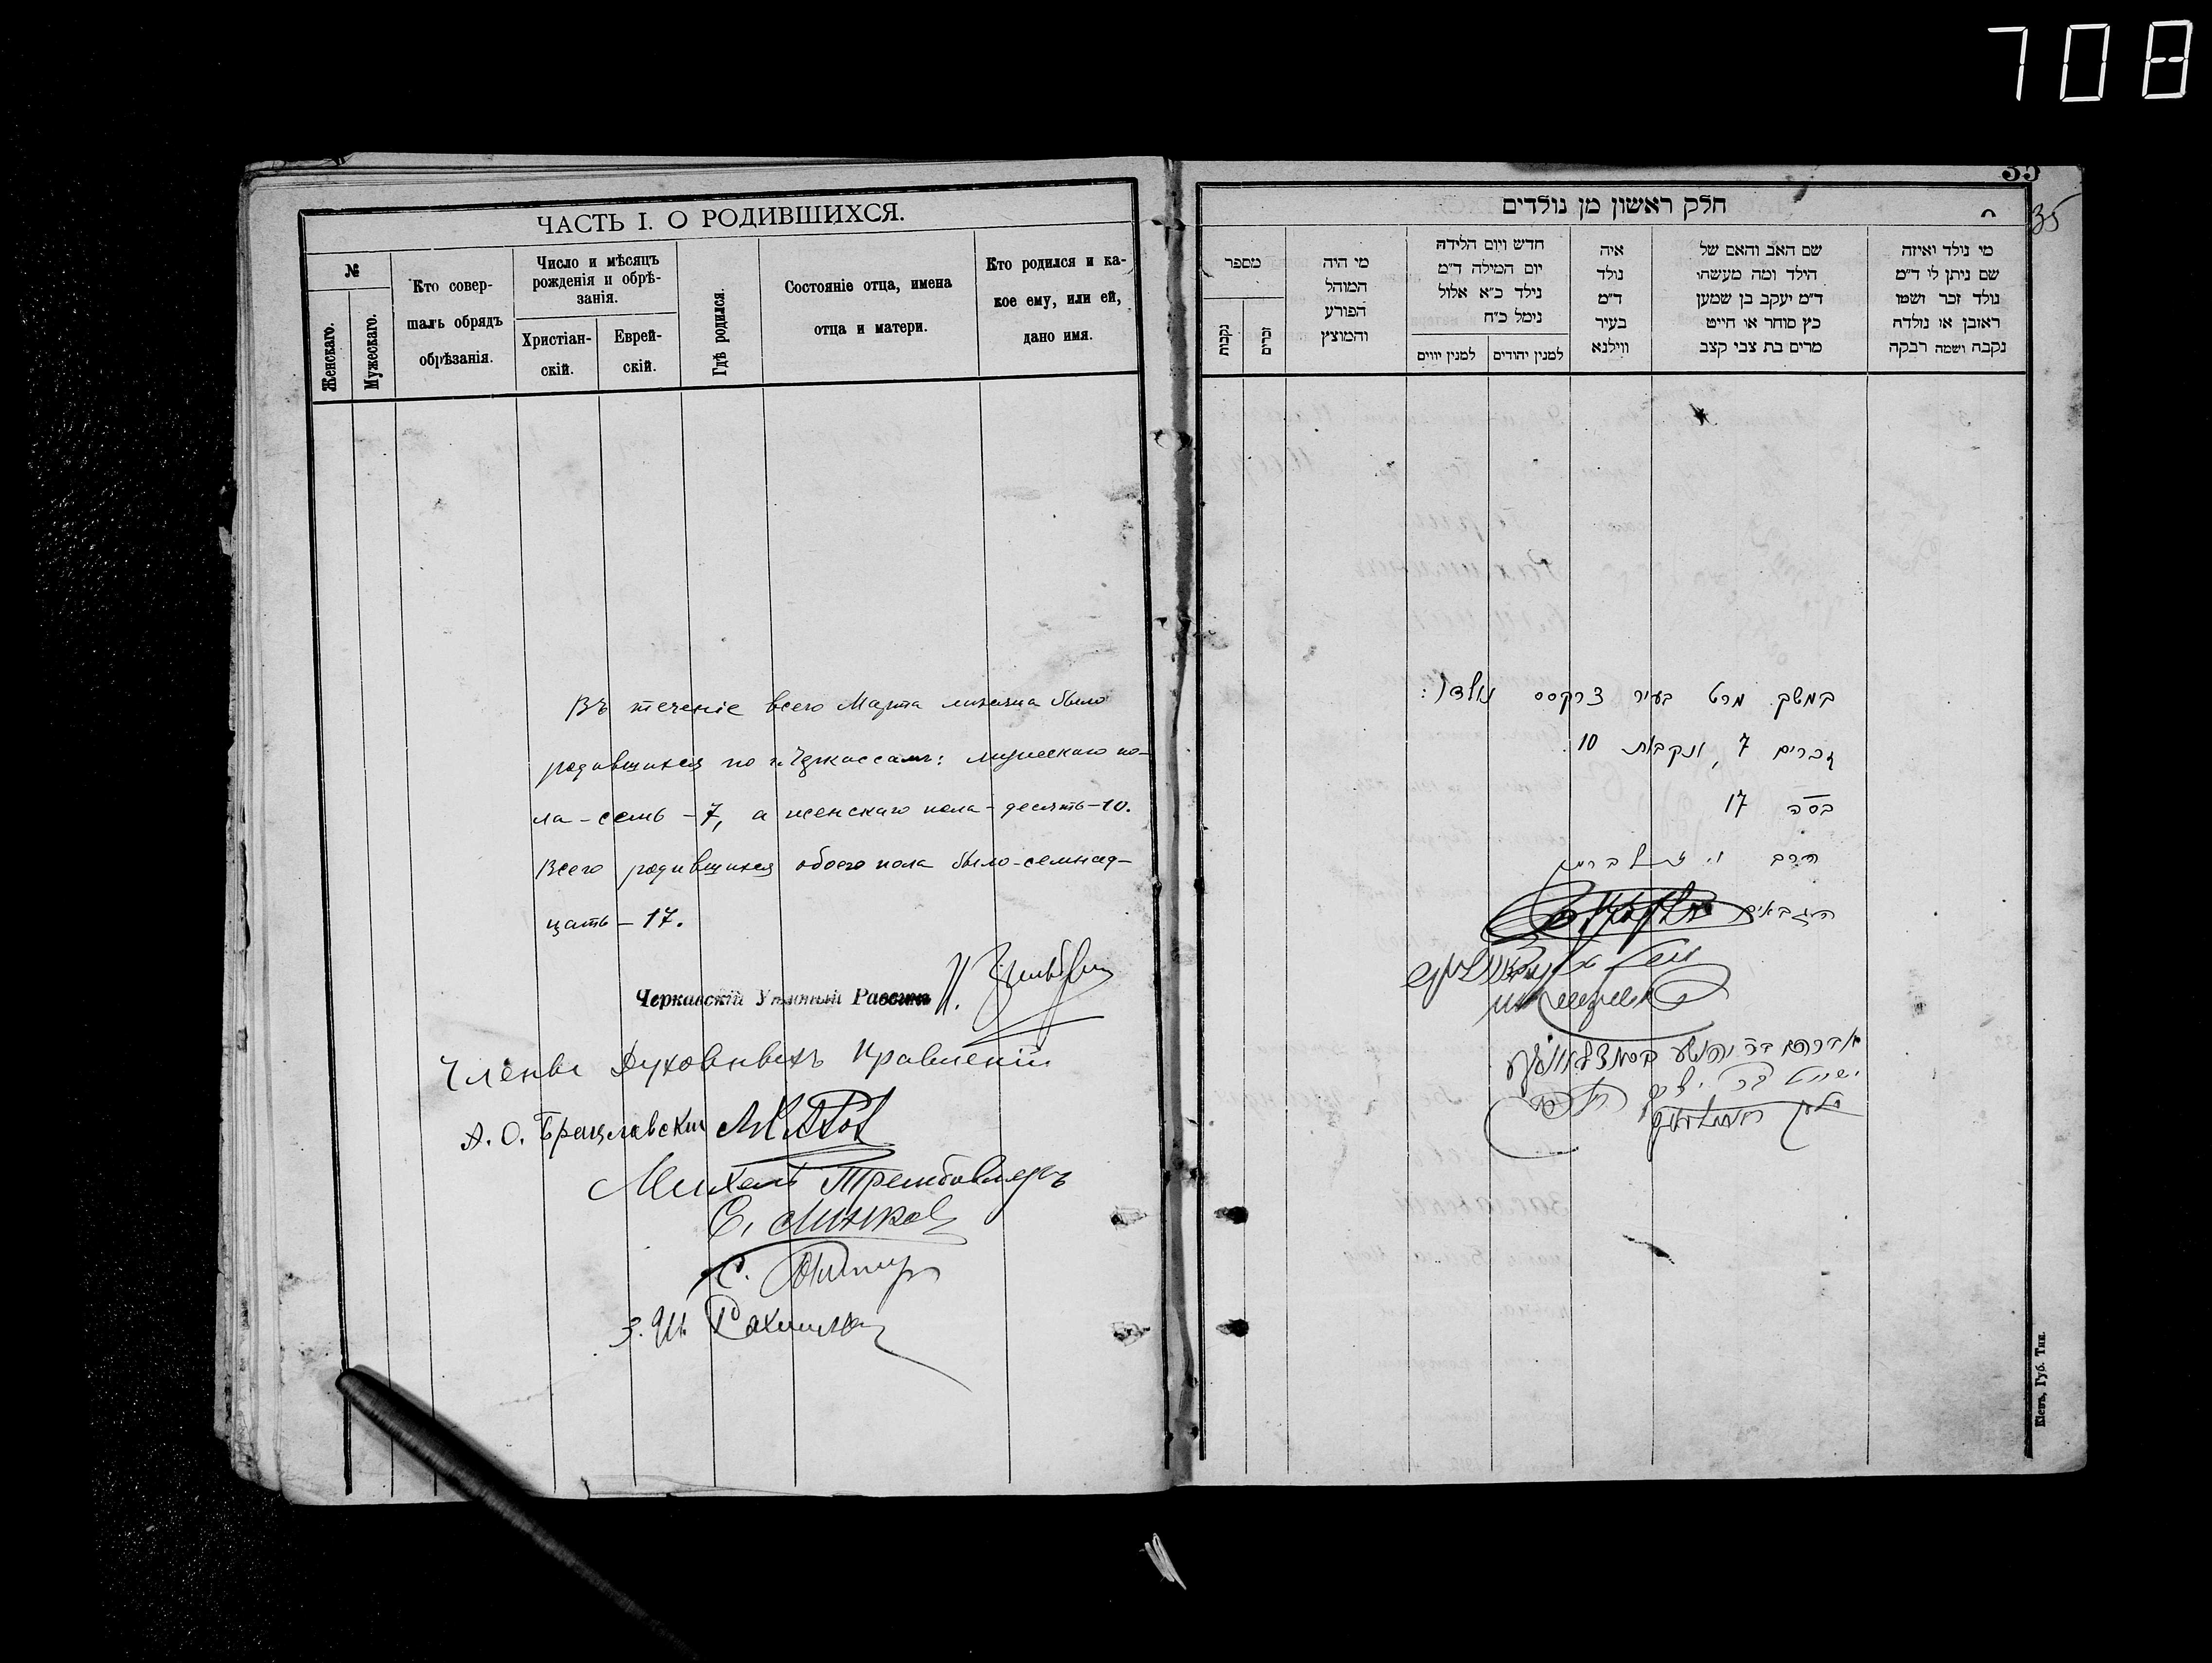 708
ЧАСТЬ I. О РОДИВШИХСЯ.
№
Женскаго.
Мужескаго.
Кто совер-
шалъ обрядъ
обрѣзанія.
Число и мѣсяцъ
рожденія и обрѣ-
занія.
Христіан-
скій.
Еврей-
скій.
Гдѣ родился.
Состояніе отца, имена
отца и матери.
Кто родился и ка-
кое ему, или ей,
дано имя.
Въ теченіе всего Марта мѣсяца было
родившихся по г. Черкассамъ: мужескаго по-
ла - семь - 7, а женскаго пола - десять - 10.
Всего родившихся обоего пола было - семнад-
цать - 17.
Черкасскій Уѣздный Раввинъ
Члены Духовныхъ Правленій
А. О. Брацлавскій
Михель Трембовлеръ
С.
С.
З. Ш. Рахми
35
35
חלק ראשון מן נולדים
מי נולד ואיזה
שם ניתן לו ד"מ
נולד זכר ושמו
ראובן או נולדה
נקבה ושמה רבקה
שם האב והאם של
הילד ומה מעשהו
ד"מ יעקב בן שמעון
כץ סוחר או חייט
מרים בת צבי קצב
איה
נולד
ד"מ
בעיר
ווילנא
חדש ויום הלידה
יום המילה ד"מ
נילד כ"א אלול
נימל כ"ח
למנין יהודים
למנין יווים
מי היה
המוהל
הפורע
והמוצץ
מספר
זכרים
נקבות
במשך מרט בעיר צרקסס נולדו:
זכרים 7, ונקבות 10.
בסה 17
הרב
הגבאים
Кіевъ, Губ. Тип.